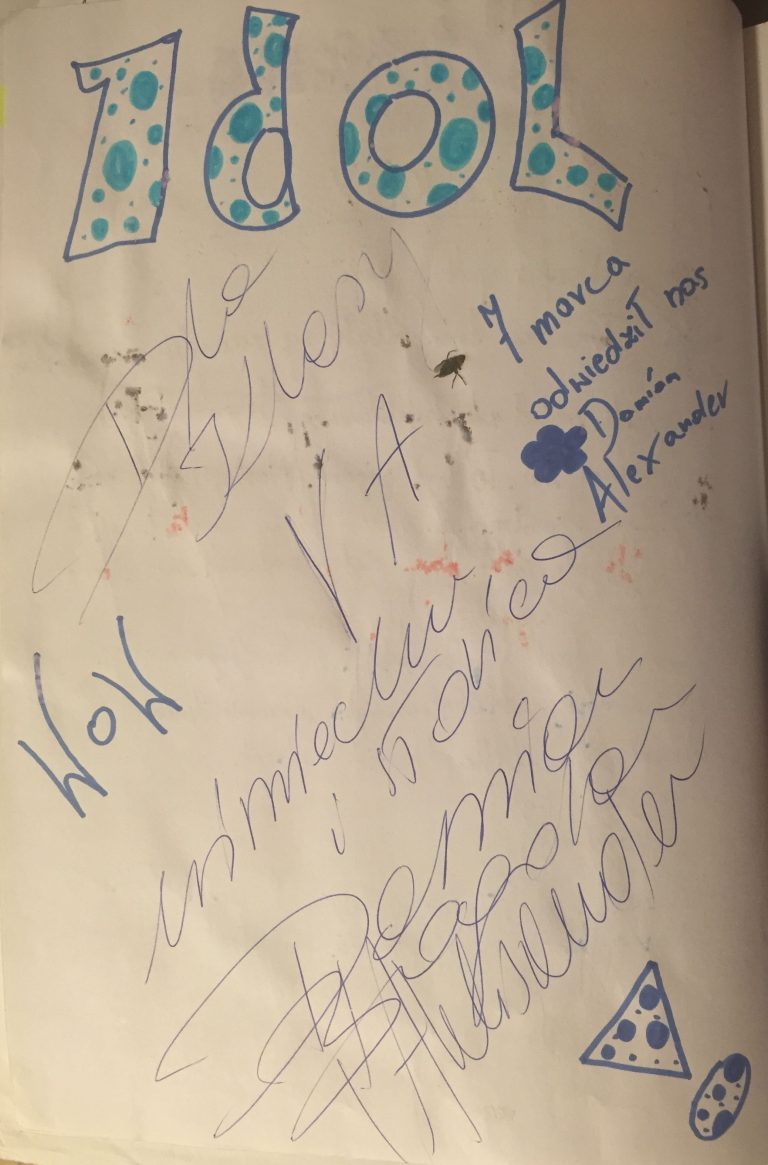 IdOL
7 marca
odwiedził nas
Damian
Alexander
Dla
Klasy
VA
WOW
uśmiechu
i słońca
Damian
Aleksander